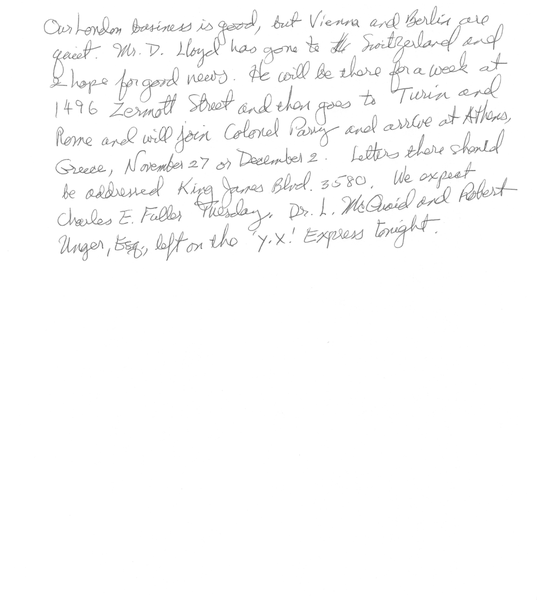 Our London business is good, but Vienna and Berlin are
quiet. Mr. D. Lloyd has gone to the Switzerland and
I hope for good news. He will be there for a week at
1496 Zermott Street and then goes to Turin and
Rome and will join Colonel Parry and arrive at Athens,
Greece, November 27 or December 2. Letters there should
be addressed King James Blvd. 3580. We expect
Charles E. Fuller Tuesday. Dr. L. McQuaid and Robert
Unger, Esq., left on the 'Y.X.' Express tonight.